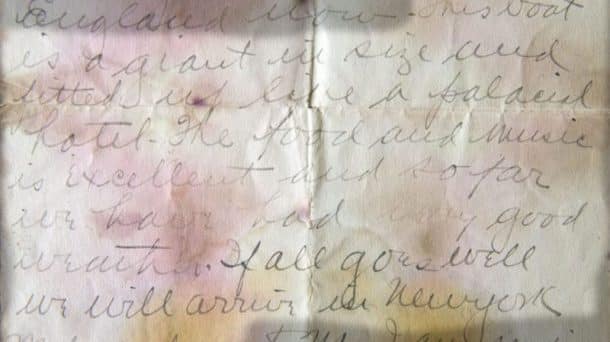 England now. This boat
is a giant in size and
fitted up like a palacial
hotel. The food and music
is excellent and so far
we have had very good
weather. If all goes well
we will arrive in New york